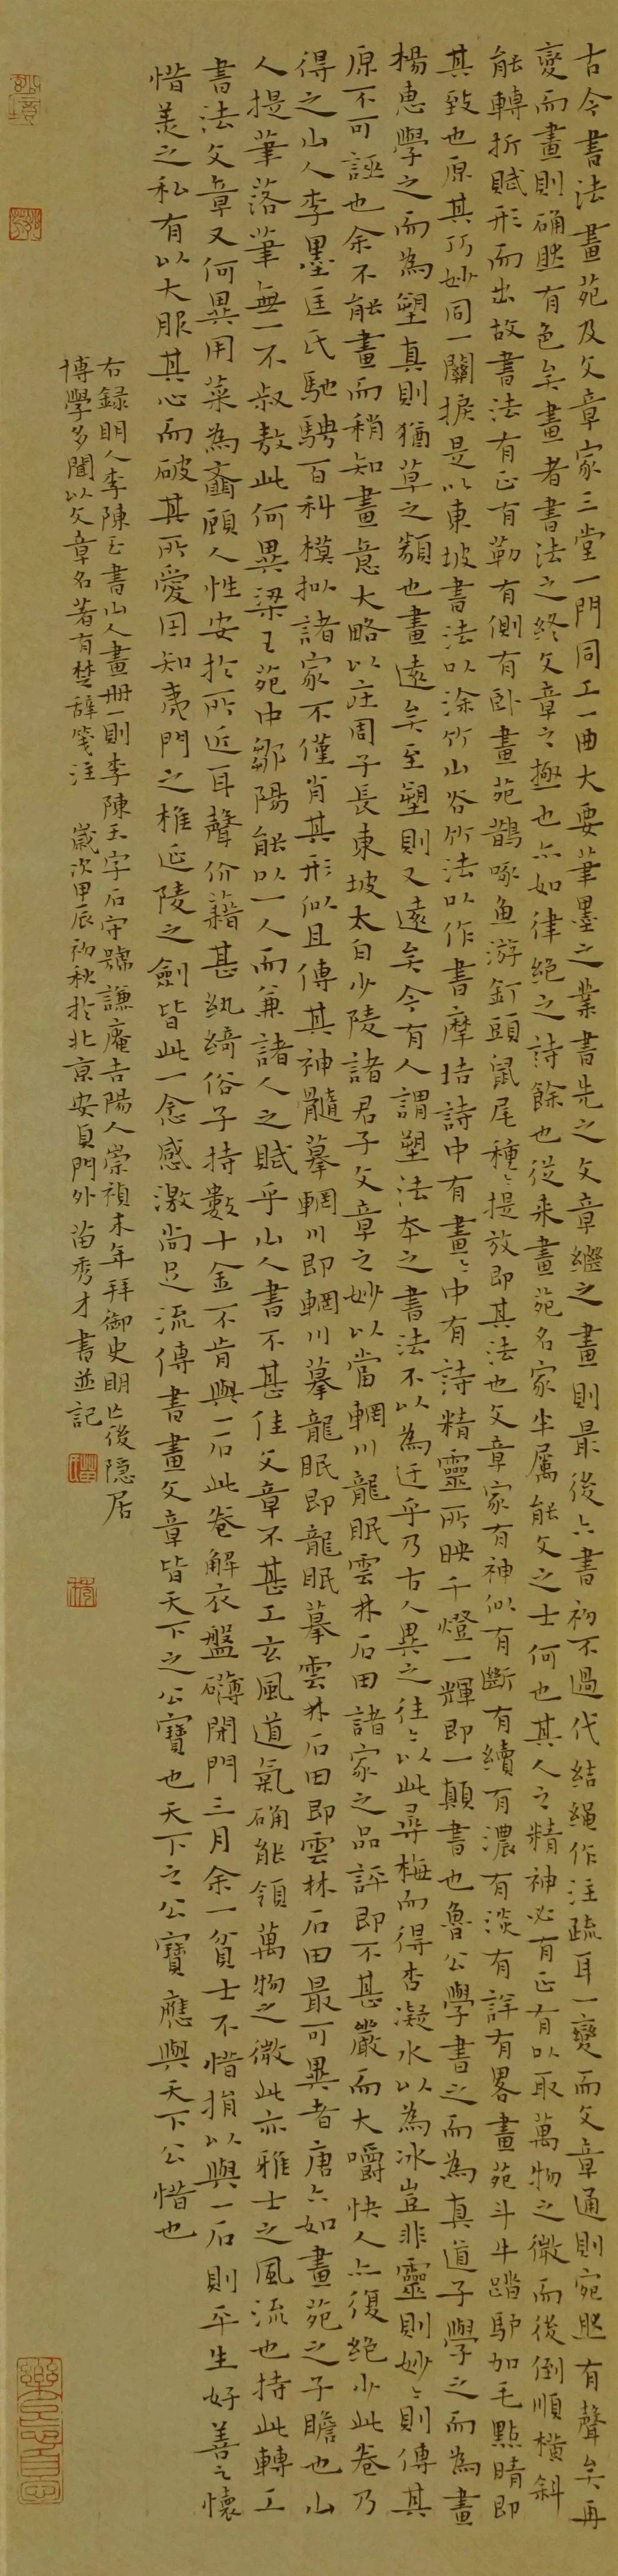 古今書法畫苑及文章家三堂一門同工一曲大要筆墨之業書先之文章繼之畫則最後六書初不過代結繩作注疏耳一變而文章通則宛然有聲矣再
變而畫則确然有色矣畫者書法之終文章之極也亦如律絕之詩餘也從来畫苑名家半属能文之士何也其人之精神必有正有以取萬物之微而後倒順橫斜
能轉折賦形而出故書法有正有勒有側有卧畫苑鵲啄魚游釘頭鼠尾種〻提放即其法也文章家有神似有斷有續有濃有淡有詳有畧畫苑斗牛踏驴加毛點睛即
其致也原其巧妙同一關捩是以東坡書法以涂竹山谷竹法以作書摩詰詩中有畫〻中有詩精靈所映千燈一輝即一顛書也魯公學書之而為真道子學之而為畫
楊惠學之而為塑真則猶草之類也畫遠矣至塑則又遠矣今有人謂塑法本之書法不以為迂乎乃古人異之往〻以此尋梅而得杏凝水以為冰豈非靈則妙〻則傳其
原不可誣也余不能畫而稍知畫意大略以庄周子長東坡太白少陵諸君子文章之妙以當輞川龍眠雲林石田諸家之品評即不甚嚴而大嚼快人亦復絕少此卷乃
得之山人李墨匡氏馳騁百科模拟諸家不僅肖其形似且傳其神髓摹輞川即輞川摹龍眠即龍眠摹雲林石田即雲林石田最可異者唐六如畫苑之子瞻也山
人提筆落筆無一不叔敖此何異梁王苑中鄒陽能以一人而兼諸人之賦乎山人書不甚佳文章不甚工玄風道氣确能領萬物之微此亦雅士之風流也持此轉工
書法文章又何異用菜為齏顧人性安於所近耳聲价藉甚紈綺俗子持數十金不肯與一石此卷解衣盤礴閉門三月余一貧士不惜捐以與一石則平生好善之懷
惜美之私有以大服其心而破其所愛因知夷門之椎延陵之劍皆此一念感激尚足流傳書畫文章皆天下之公寶也天下之公寶應與天下公惜也
右録明人李陳玉書山人畫冊一則李陳玉字石守號謙庵吉陽人崇禎末年拜御史明亡後隐居
博學多聞以文章名著有楚辭笺注 歲次甲辰初秋於北京安貞門外 苗秀才書並記